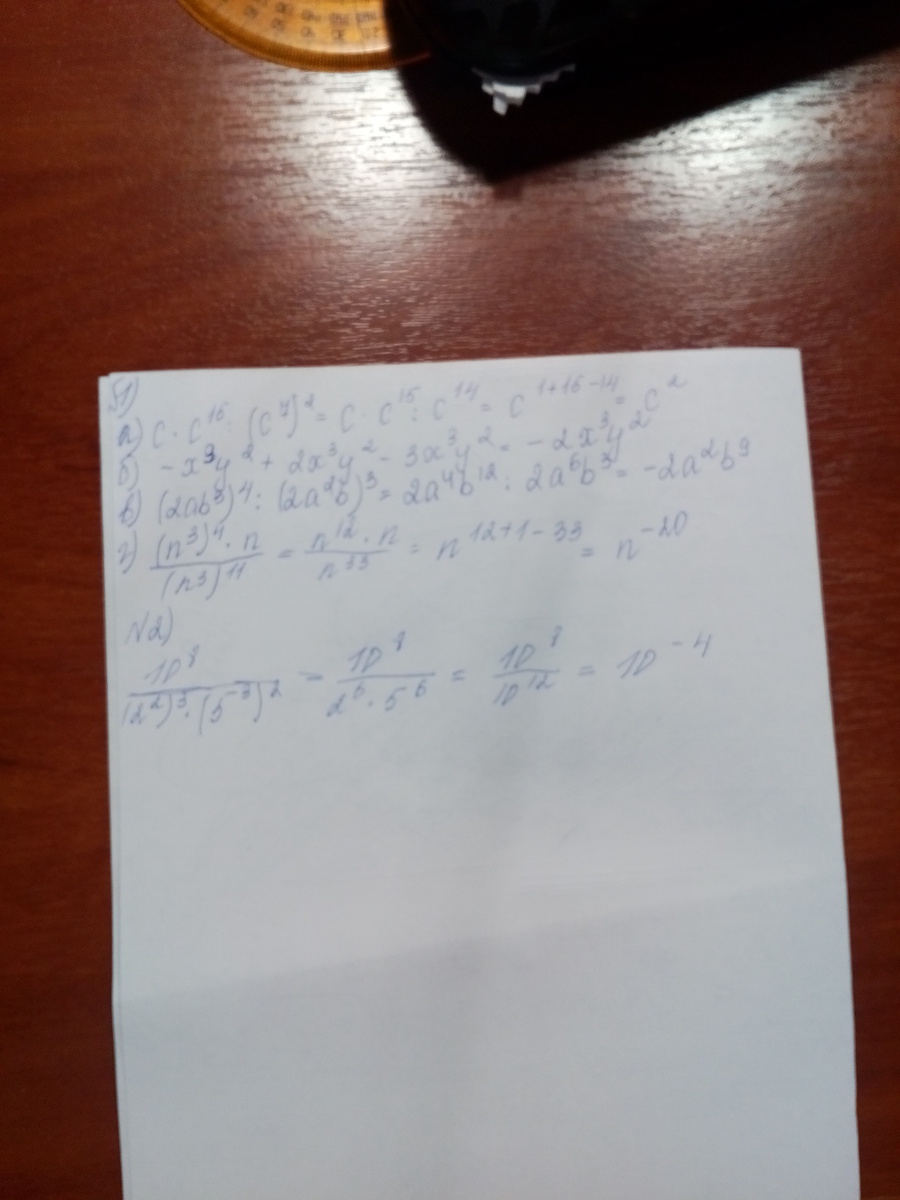 №1)
а) c · c¹⁵ : (c⁷)² = c · c¹⁵ : c¹⁴ = c¹⁺¹⁵⁻¹⁴ = c²
б) -x³y² + 2x³y² - 3x³y² = -2x³y²
в) (2ab³)⁴ : (2a²b)³ = 2a⁴b¹² : 2a⁶b³ = -2a²b⁹
г) (n³)⁴ · n / (n³)¹¹ = n¹² · n / n³³ = n¹²⁺¹⁻³³ = n⁻²⁰
№2)
10⁸ / (2²)³ · (5⁻³)² = 10⁸ / 2⁶ · 5⁶ = 10⁸ / 10¹² = 10⁻⁴